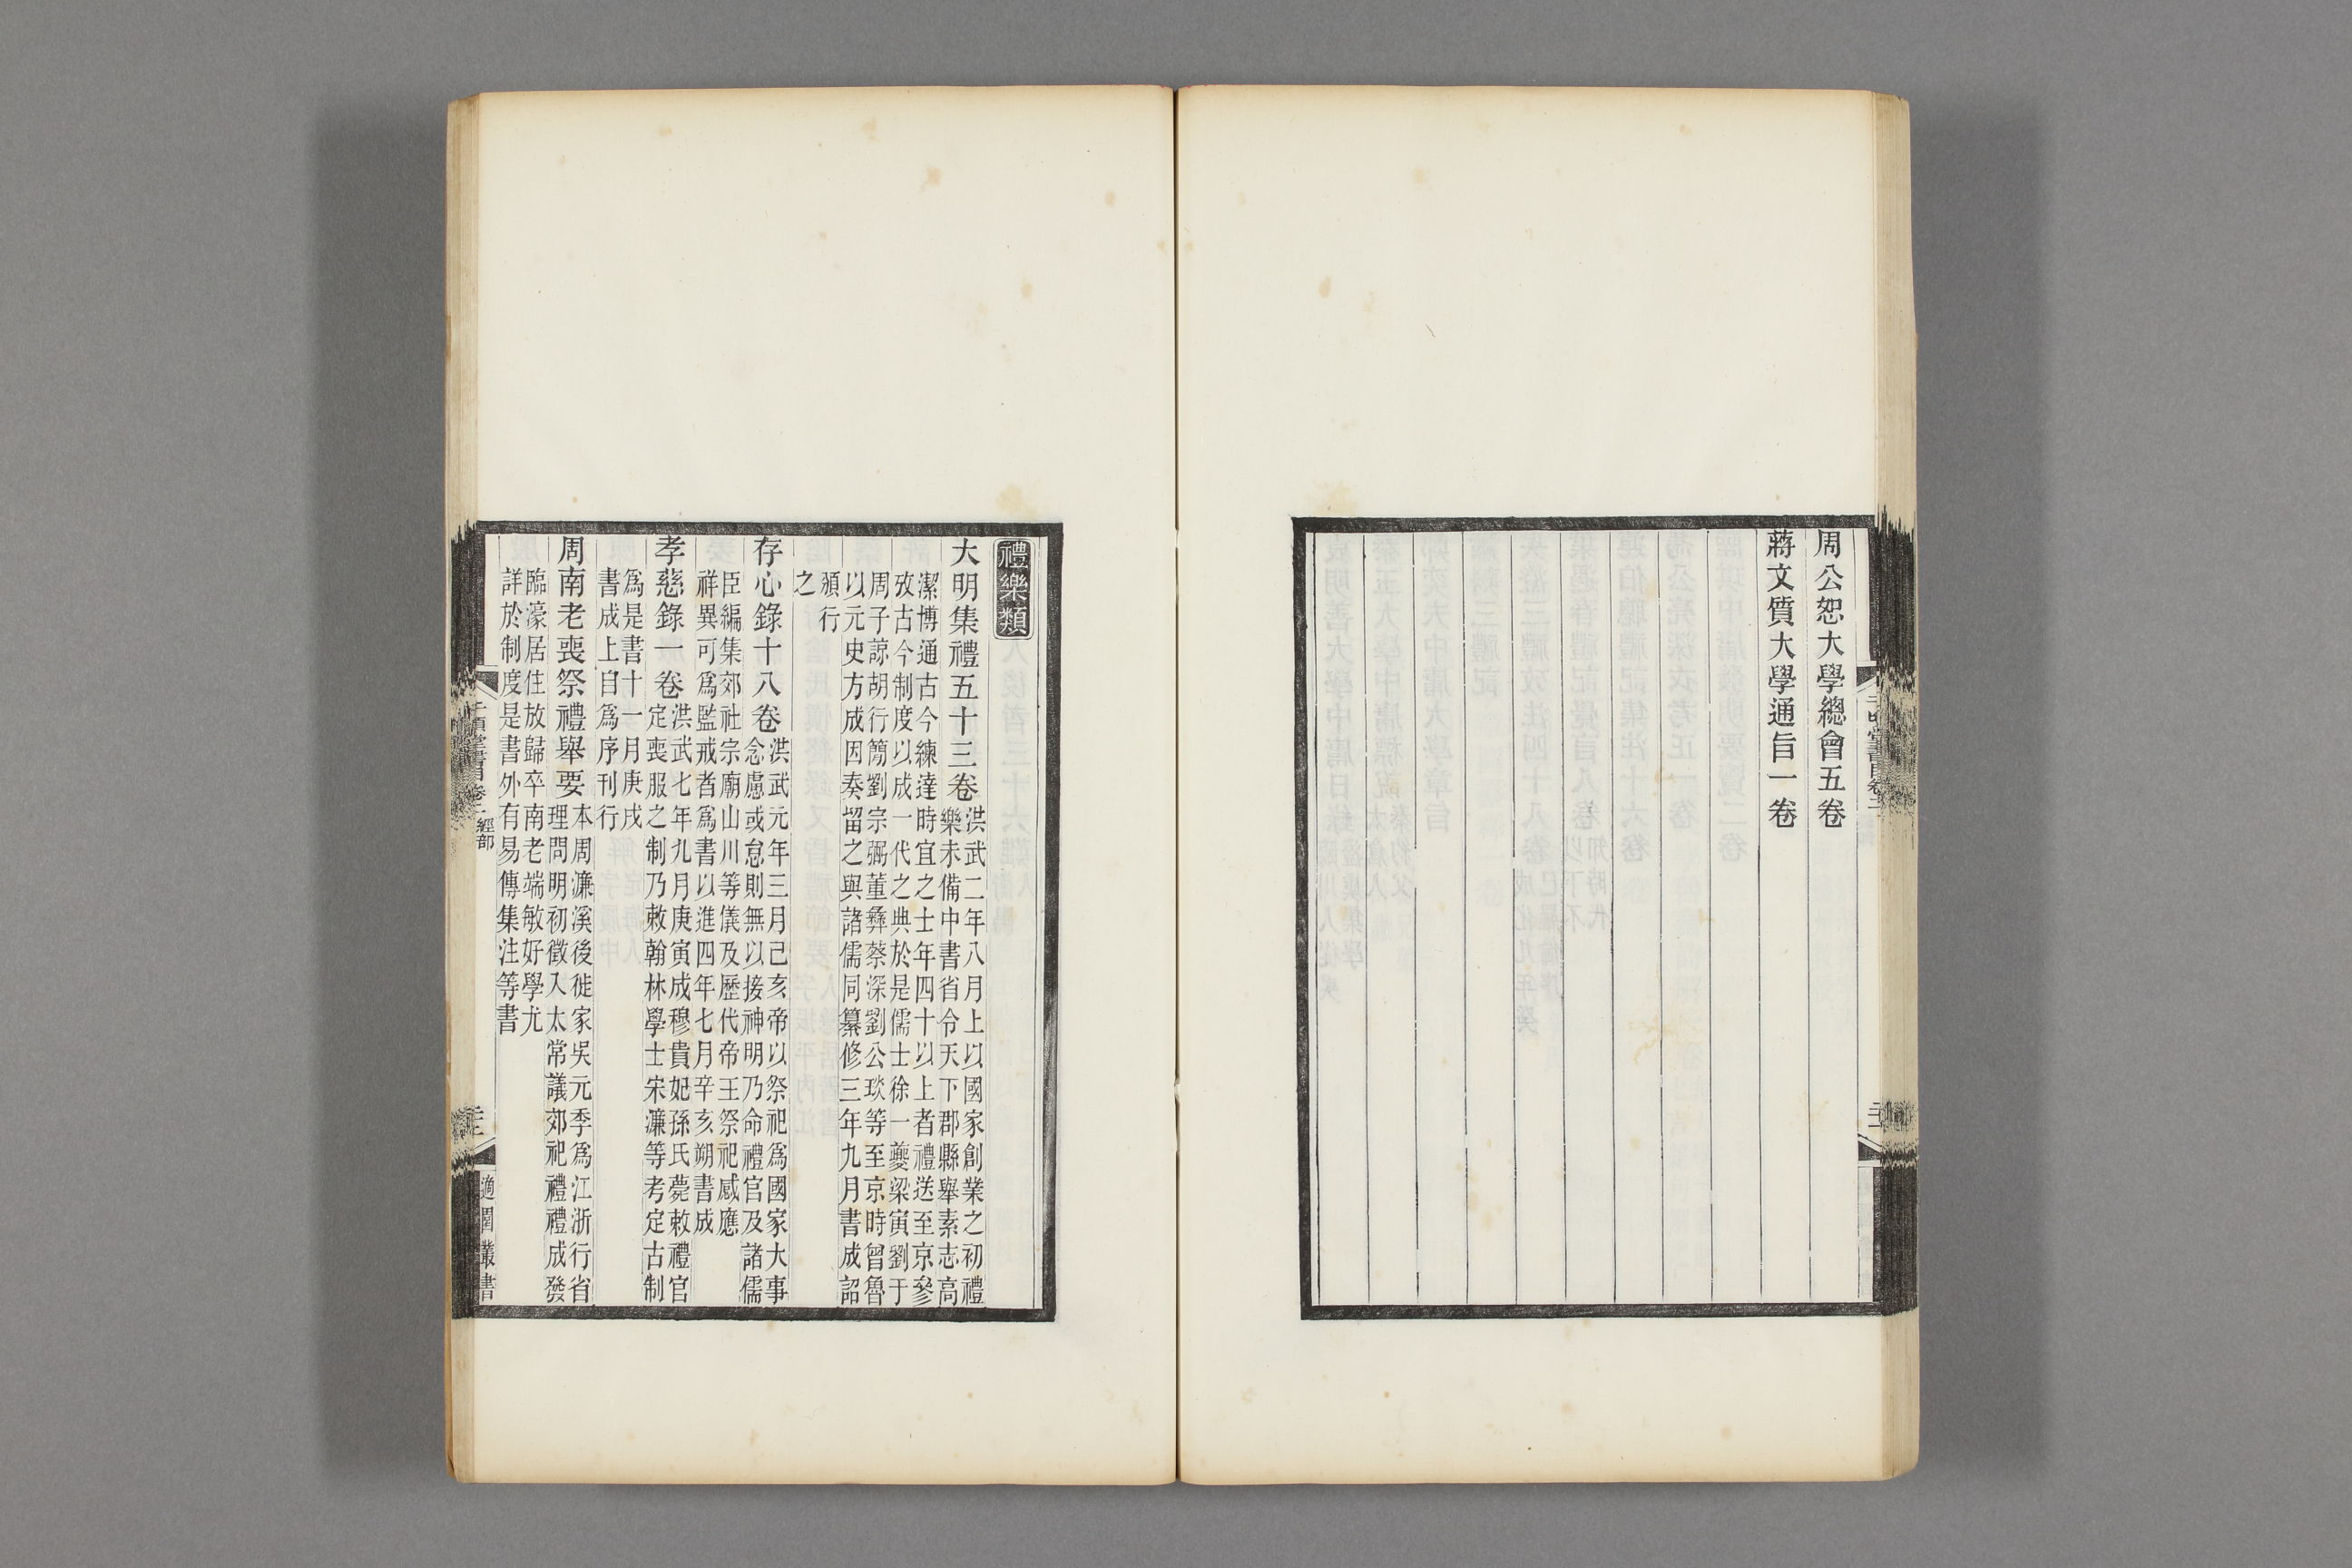 周公恕大學總會五卷
蔣文質大學通旨一卷
禮樂類
大明集禮五十三卷
洪武二年八月上以國家創業之初禮
樂未備中書省令天下郡縣舉素志高
潔博通古今練達時宜之士年四十以上者禮送至京參
攷古今制度以成一代之典於是儒士徐一夔梁寅劉于
周子諒胡行簡劉宗弼董彝蔡深劉公琰等至京時曾魯
以元史方成因奏留之與諸儒同纂修三年九月書成詔
頒行
之
存心錄十八卷
洪武元年三月己亥帝以祭祀爲國家大事
念慮或怠則無以接神明乃命禮官及諸儒
臣編集郊社宗廟山川等儀及歷代帝王祭祀感應
祥異可爲監戒者爲書以進四年七月辛亥朔書成
孝慈錄一卷
洪武七年九月庚寅成穆貴妃孫氏薨敕禮官
定喪服之制乃敕翰林學士宋濂等考定古制
爲是書十一月庚戌
書成上自爲序刊行
周南老喪祭禮舉要
本周濂溪後徙家吳元季爲江浙行省
理問明初徵入太常議郊祀禮禮成發
臨濠居住放歸卒南老端敏好學尤
詳於制度是書外有易傳集注等書
千頃堂書目卷二 經部
適園叢書